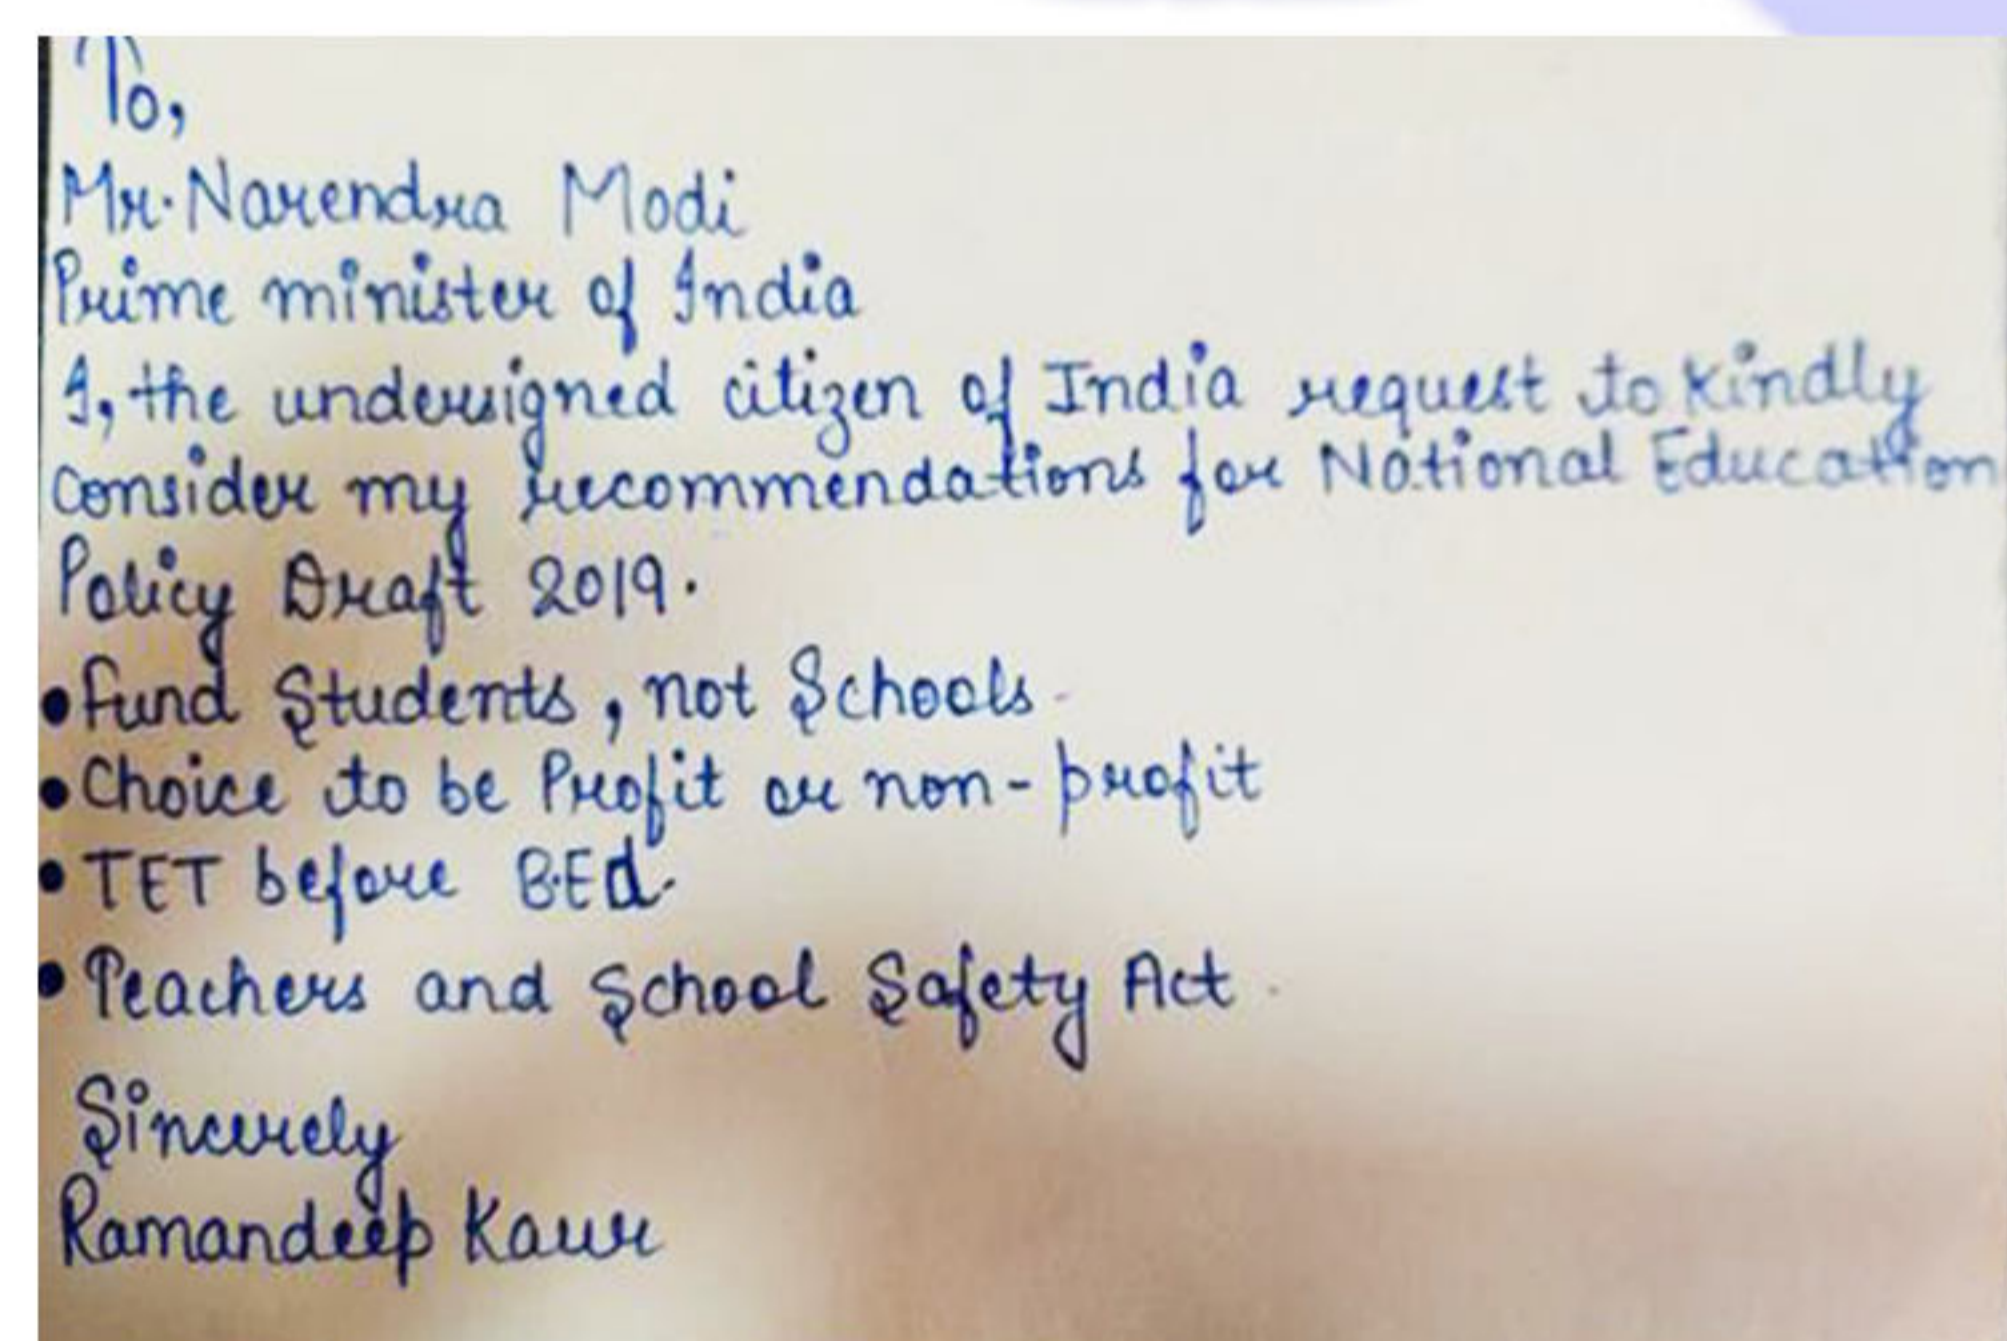 To,
Mr. Narendra Modi
Prime minister of India
I, the undersigned citizen of India request to kindly
consider my recommendations for National Education
Policy Draft 2019.
• Fund Students, not Schools.
• Choice to be Profit or non-profit
• TET before B.Ed.
• Teachers and School Safety Act.
Sincerely
Ramandeep Kaur